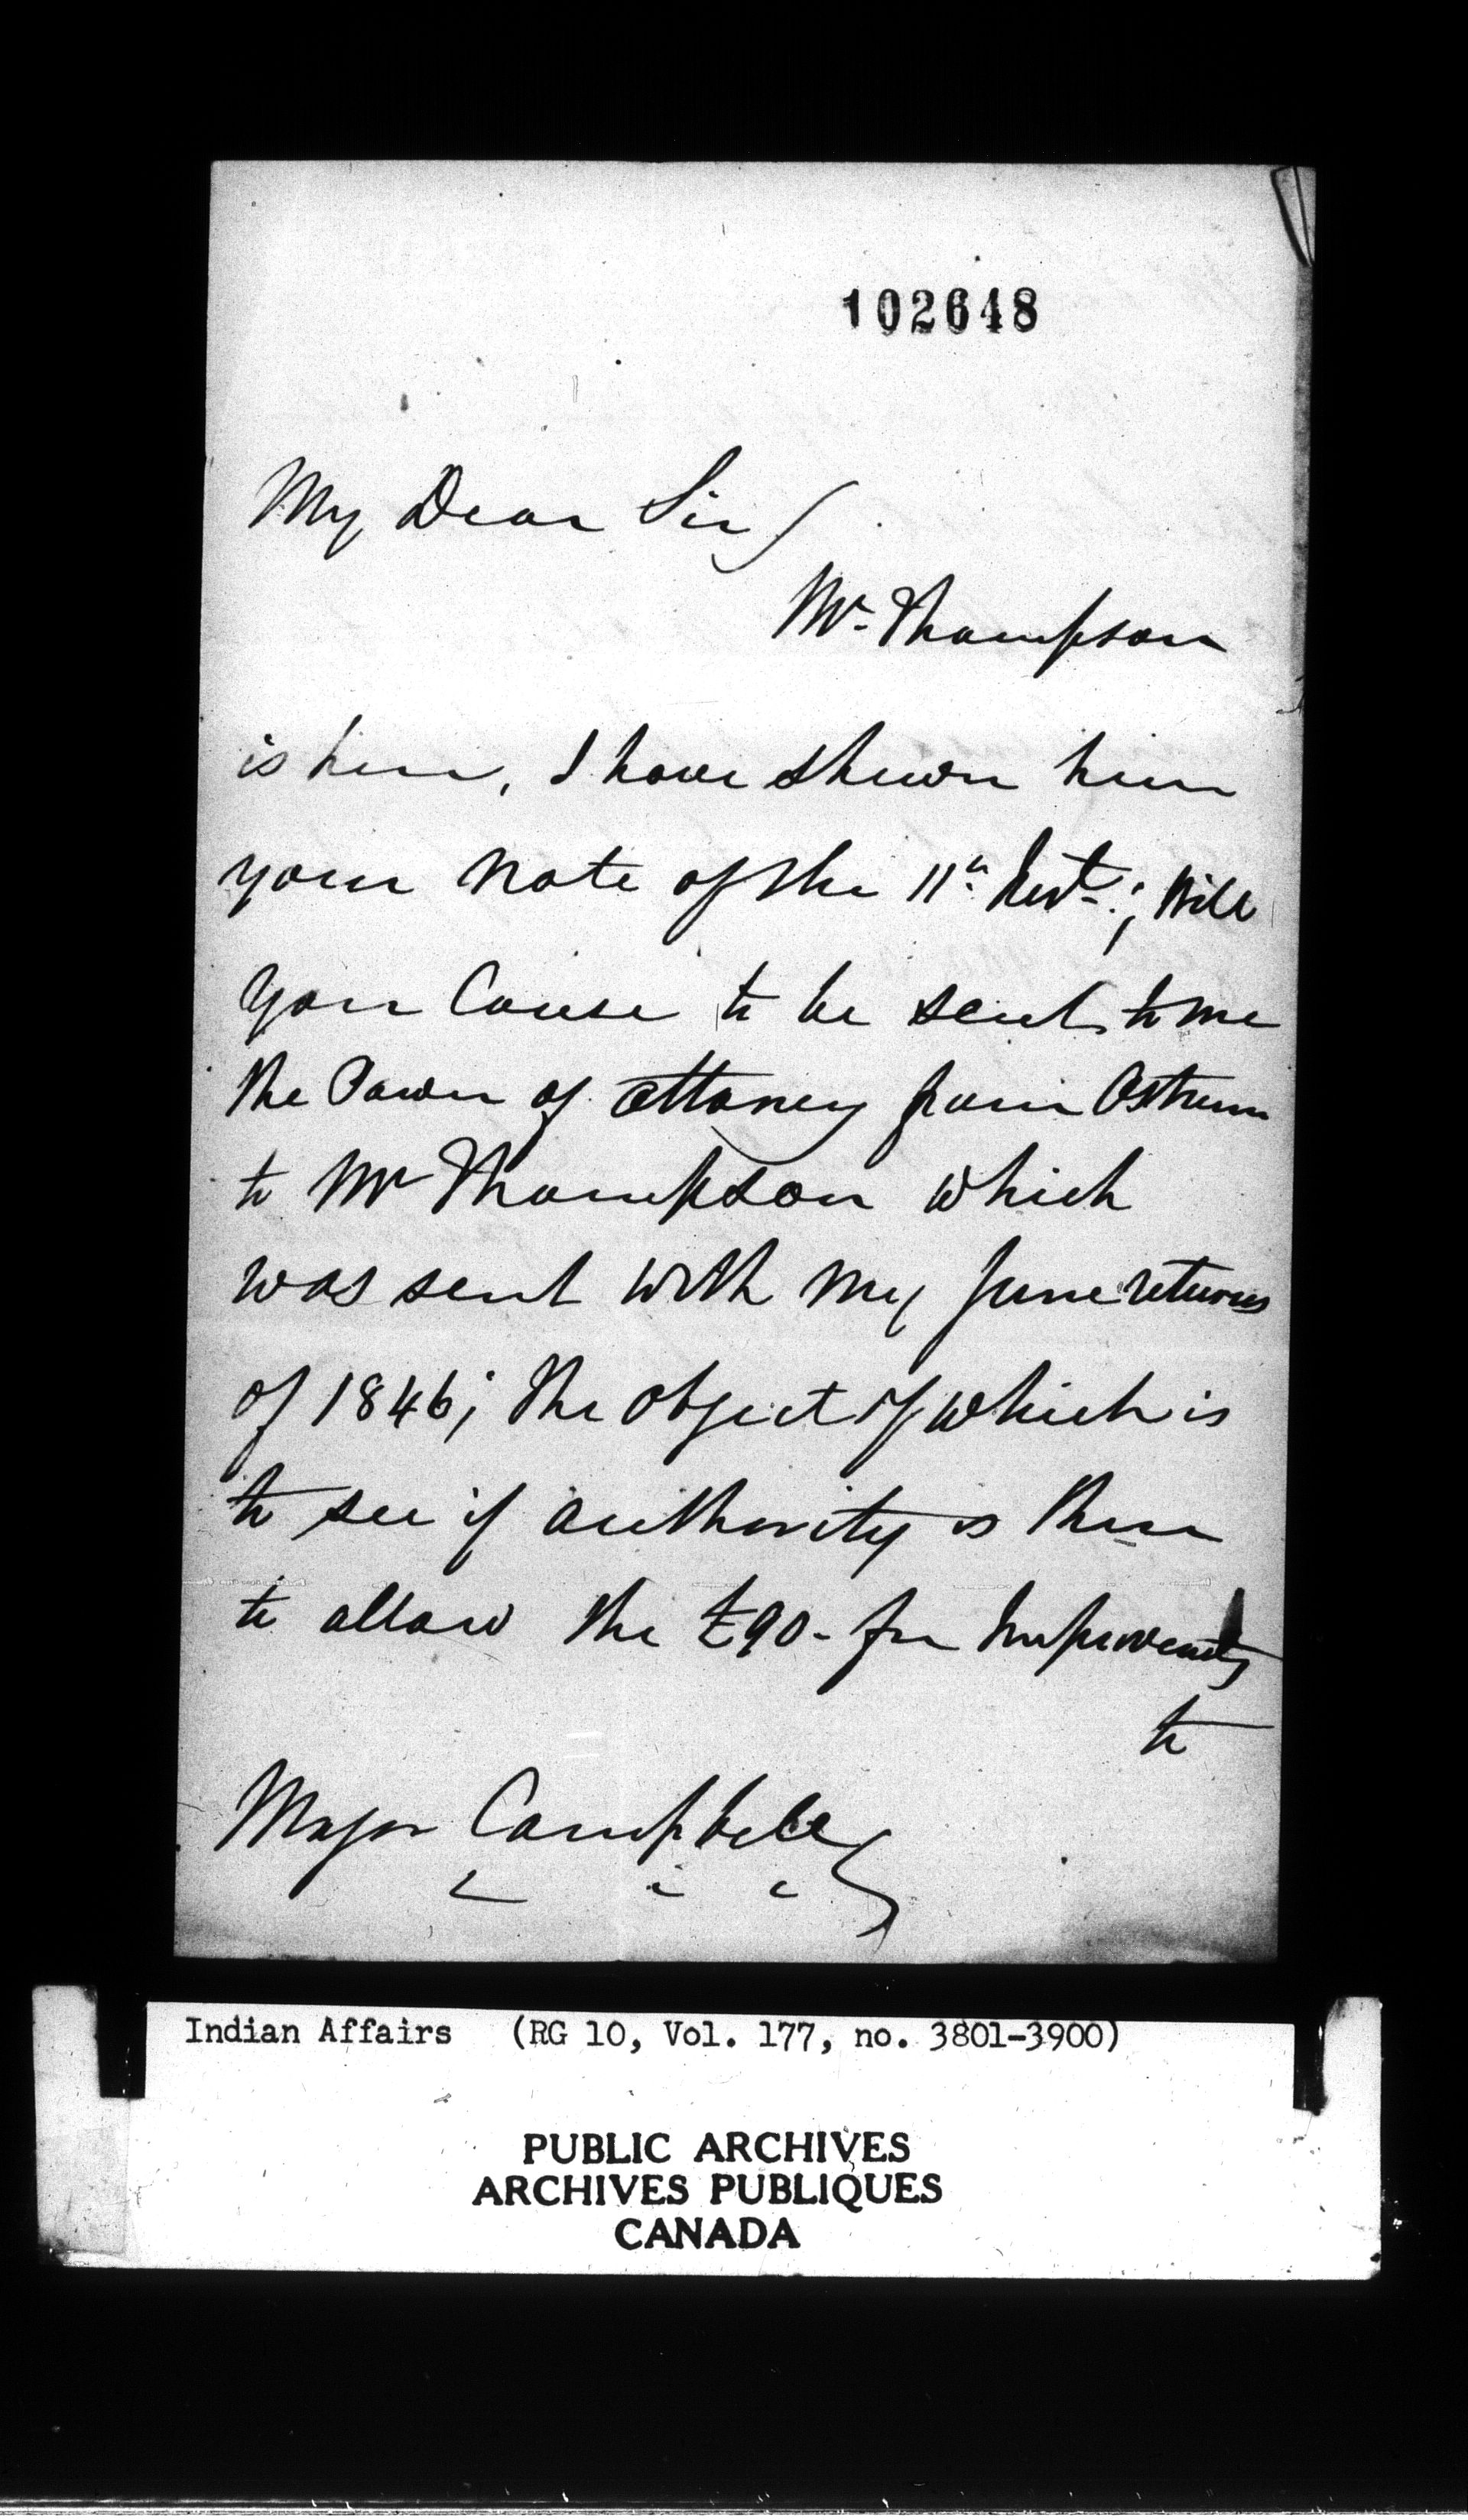 102648
My Dear Sir/
Mr. Thompson
is here, I have shewn him
your note of the 11th Inst.; Will
you Cause to be sent to me
the Power of attorney from Ostrum
to Mr Thompson which
was sent with my June returns
of 1846; the object of which is
to see if authority is there
to allow the £90 - for Improvements
to
Major Campbell
Indian Affairs (RG 10, Vol. 177, no. 3801-3900)
PUBLIC ARCHIVES
ARCHIVES PUBLIQUES
CANADA